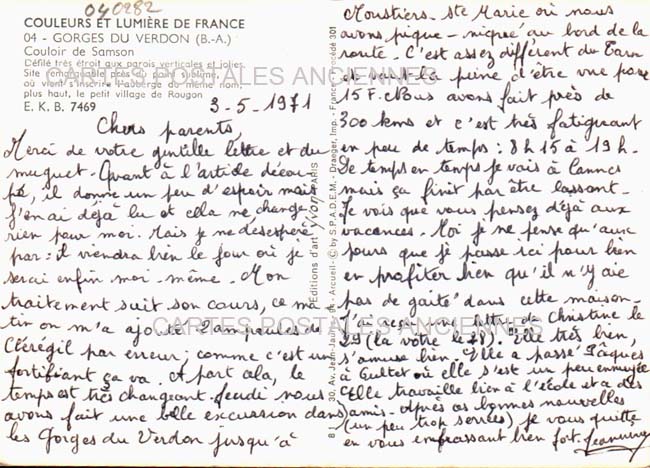 040282
COULEURS ET LUMIÈRE DE FRANCE
04 - GORGES DU VERDON (B.-A.)
Couloir de Samson
Défilé très étroit aux parois verticales et jolies.
Site remarquable près du point sublime,
où vient s'inscrire l'auberge du même nom,
plus haut, le petit village de Rougon
E. K. B. 7469
3-5-1971
Chers parents,
Merci de votre gentille lettre et du
muguet. Quant à l'article décou-
pé, il donne un peu d'espoir mais
j'en ai déjà lu et cela ne change
rien pour moi. Mais je ne désespère
pas : il viendra bien le jour où je
serai enfin moi-même. Mon
traitement suit son cours, ce ma-
tin on m'a ajouté 2 ampoules de
par erreur ; comme c'est un
fortifiant ça va. A part cela, le
temps est très changeant. Jeudi nous
avons fait une belle excussion dans
les Gorges du Verdon jusqu'à
Moustiers-Ste Marie où nous
avons pique-niqué au bord de la
route. C'est assez différent du Tarn
et vaut la peine d'être vue pour
15 F. Nous avons fait près de
300 kms et c'est très fatigant
en peu de temps : 8 h 15 à 19 h.
De temps en temps je vais à Cannes
mais ça finit par être lassant.
Je vois que vous pensez déjà aux
vacances. Moi je ne pense qu'aux
jours que je passe ici pour bien
en profiter bien qu'il n'y aie
pas de gaité dans cette maison.
J'ai reçu une lettre de Christine le
29 (la vôtre le 28). Elle très bien,
s'amuse bien. Elle a passé Pâques
à où elle s'est un peu ennuyée
Elle travaille bien à l'école et a des
amis. Après ces bonnes nouvelles
(un peu trop serrées) je vous quitte
en vous embrassant bien fort. Jeannine
Editions d'art yvon PARIS
30, Av. Jean-Jaurès, 94 - Arcueil - © by S.P.A.D.E.M. - Draeger, Imp. - France - Procédé 301
CARTES POSTALES ANCIENNES
CARTES POSTALES ANCIENNES